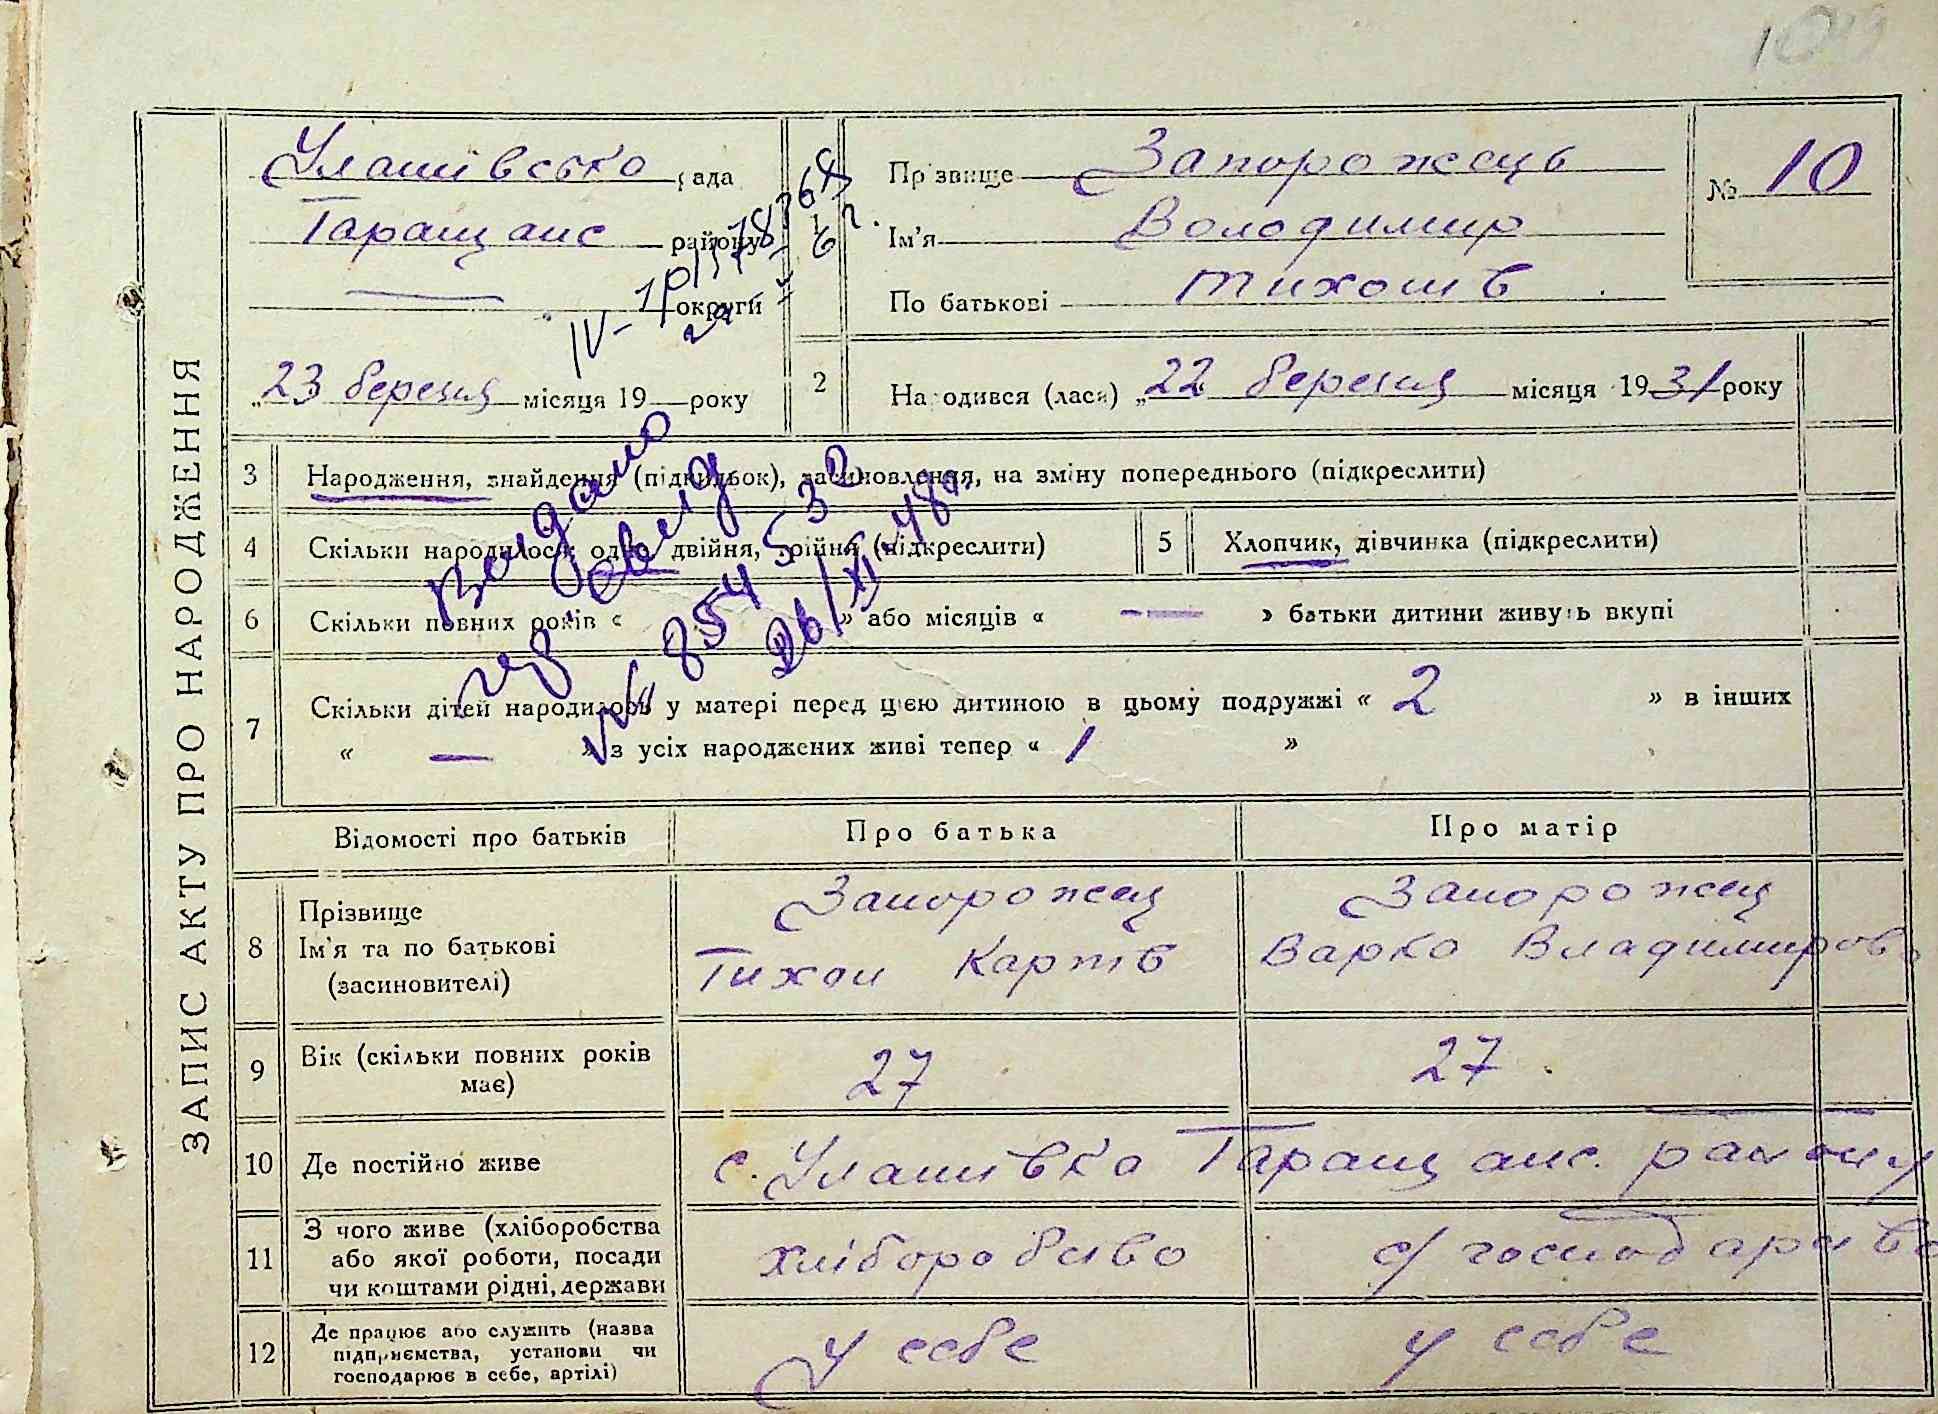 ЗАПИС АКТУ ПРО НАРОДЖЕННЯ
Улашівсько рада
Таращанс району
— округи
„23 березня місяця 19 — року
Прізвище Запорожець
Ім'я Володимир
По батькові Тихонів
№ 10
2 Народився (лася) „22 березня місяця 1931 року
3 Народження, знайдення (підкидьок), засиновлення, на зміну попереднього (підкреслити)
4 Скільки народилось: одно, двійня, трійня (підкреслити)
5 Хлопчик, дівчинка (підкреслити)
6 Скільки повних років « » або місяців « — » батьки дитини живуть вкупі
7 Скільки дітей народилось у матері перед цією дитиною в цьому подружжі « 2 » в інших
« — » з усіх народжених живі тепер « 1 »
Видано
свид
№ 854532
26/XI 48
Відомості про батьків Про батька Про матір
8 Прізвище
Ім'я та по батькові
(засиновителі)
Запорожец
Тихон Карпів
Запорожец
Варка Владимиров
9 Вік (скільки повних років
має)
27 27
10 Де постійно живе с. Улашівка Таращанс. району
11 З чого живе (хліборобства
або якої роботи, посади
чи коштами рідні, держави
хліборобство с/господарство
12 Де працює або служить (назва
підприємства, установи чи
господарює в себе, артілі)
у себе у себе